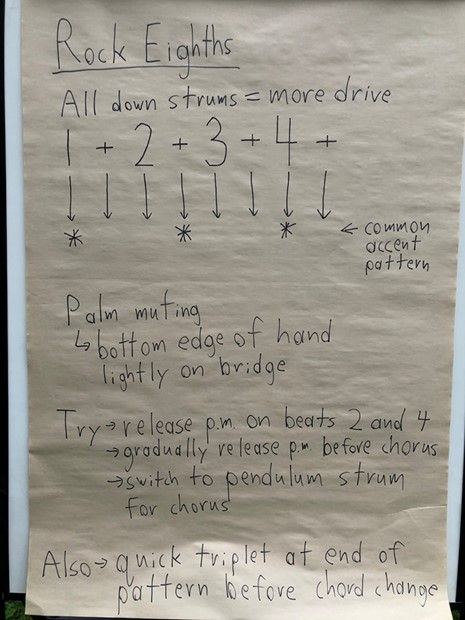 Rock Eighths
All down strums = more drive
1 + 2 + 3 + 4 +
↓ ↓ ↓ ↓ ↓ ↓ ↓ ↓
* * * ← common
accent
pattern
Palm muting
↳ bottom edge of hand
lightly on bridge
Try → release p.m. on beats 2 and 4
→ gradually release p.m. before chorus
→ switch to pendulum strum
for chorus
Also → quick triplet at end of
pattern before chord change